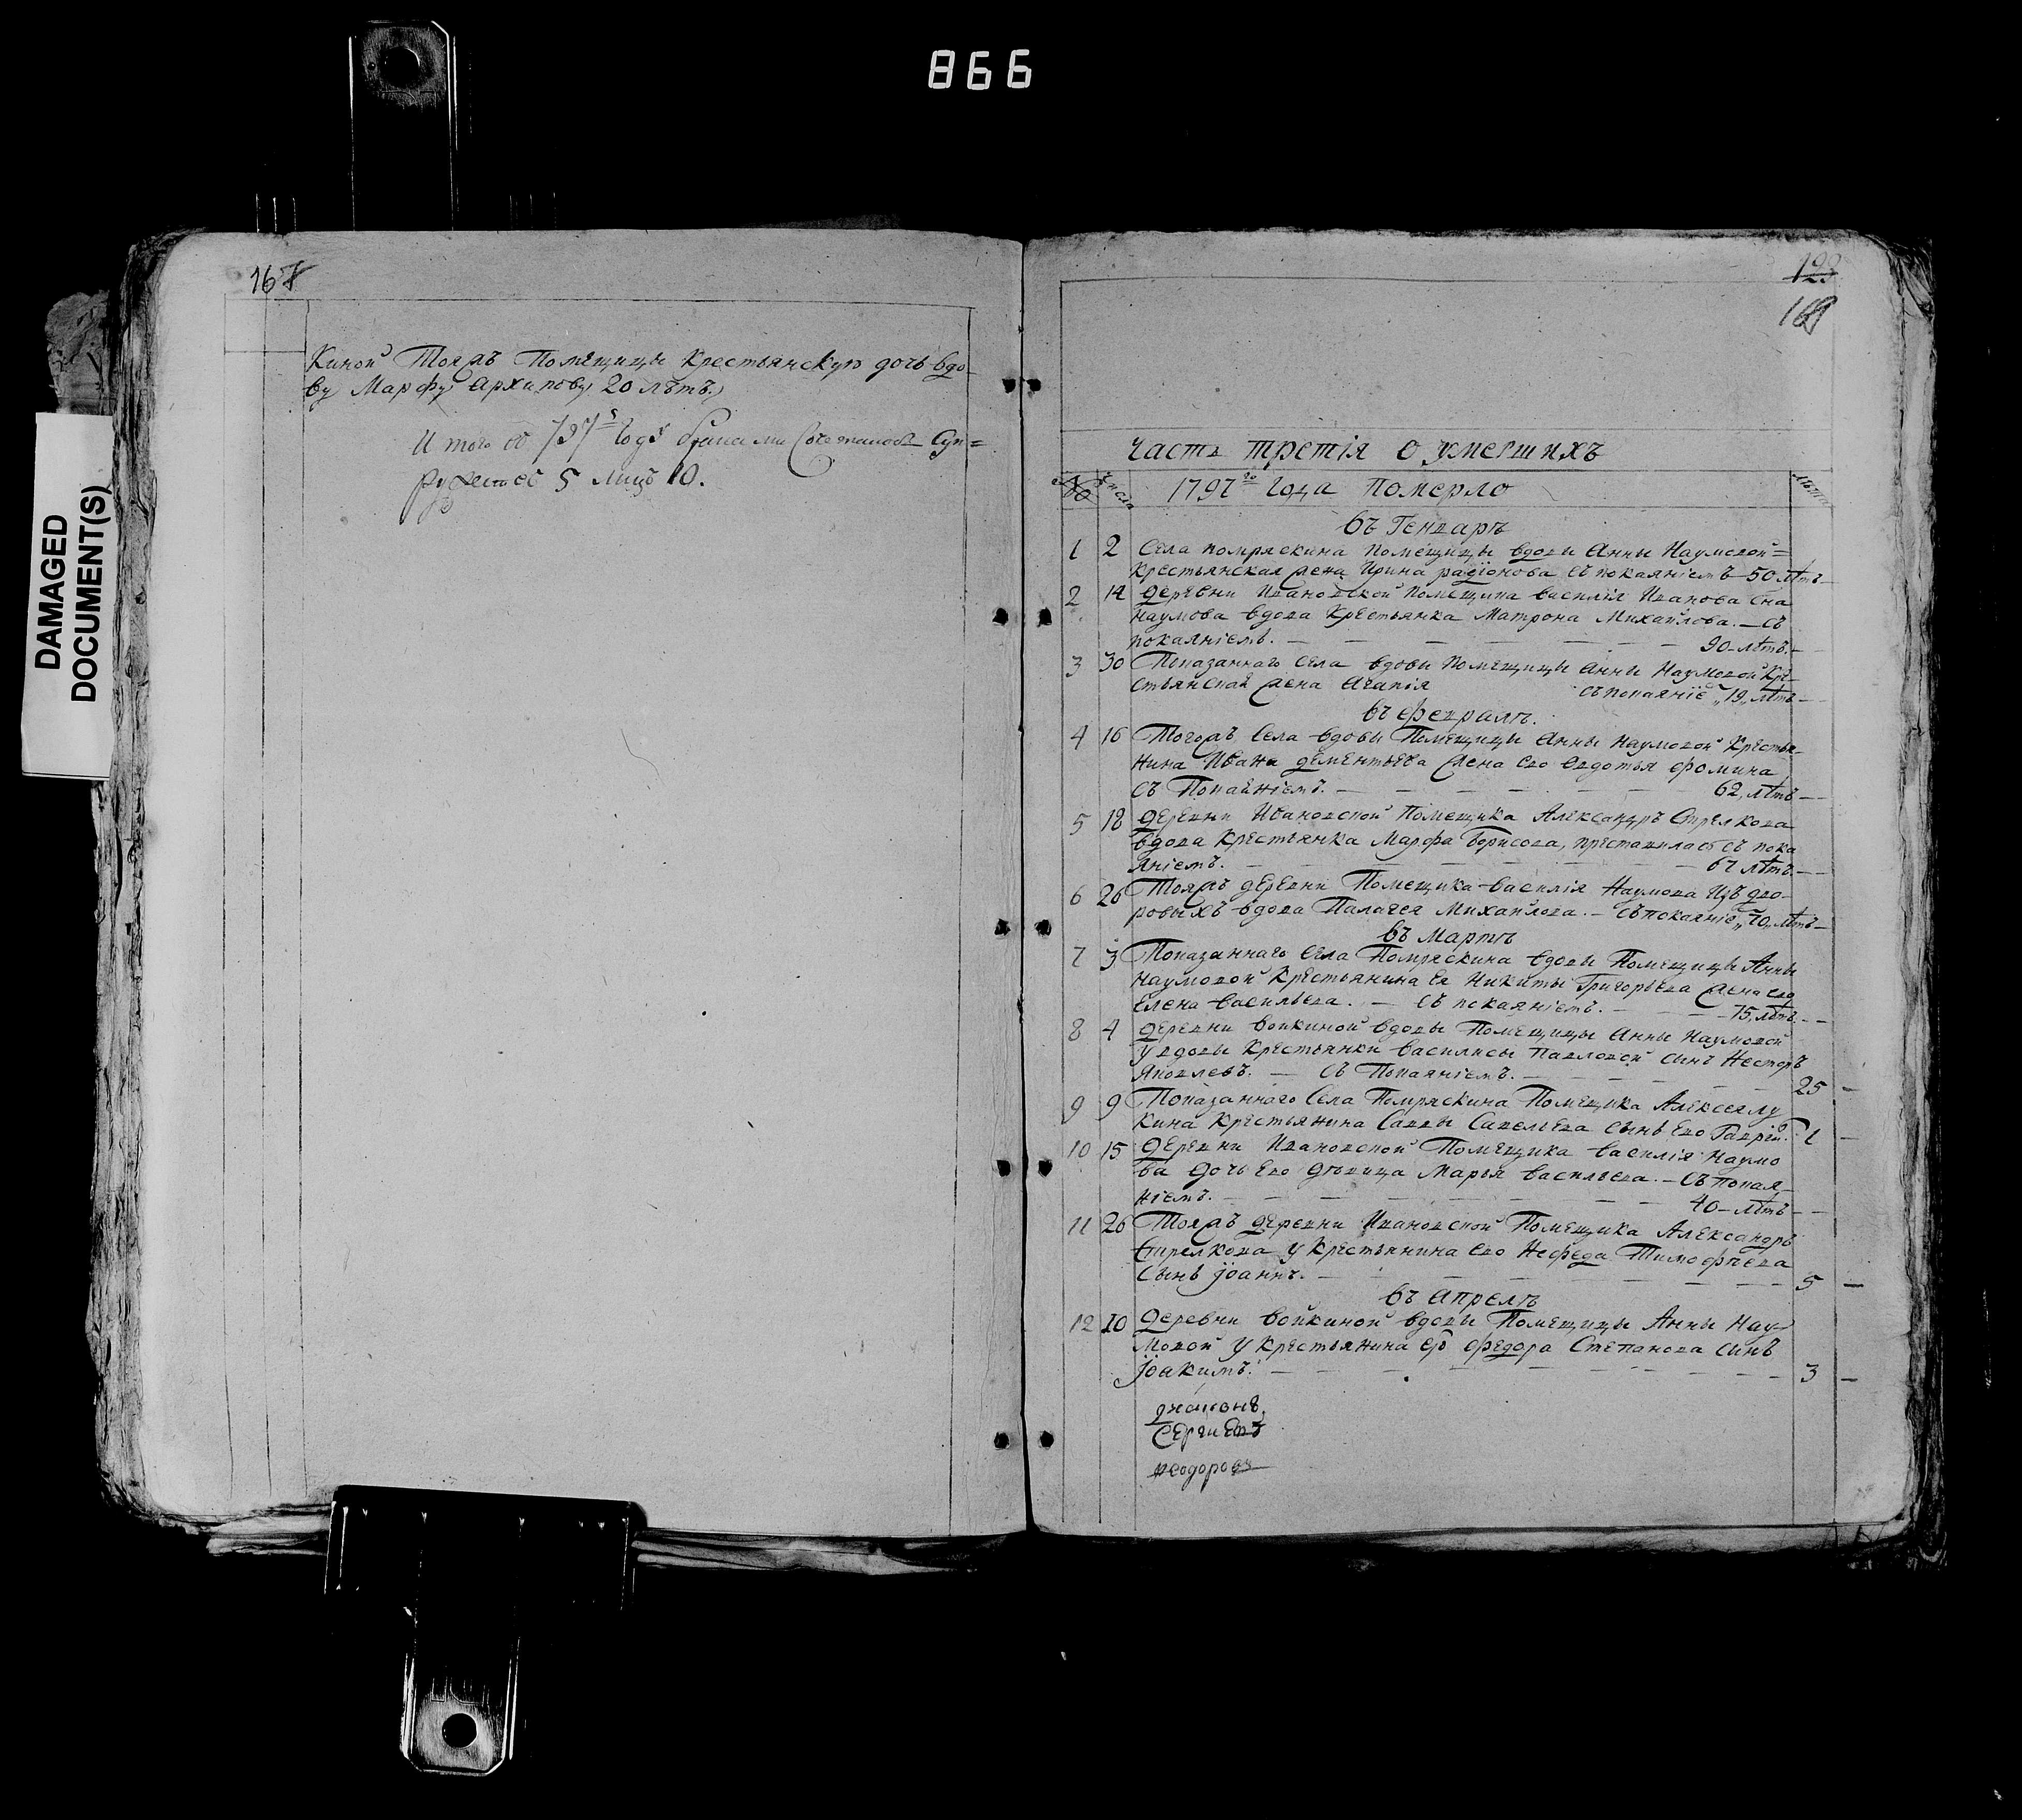 866
DAMAGED
DOCUMENT(S)
167
Киной Тояжъ Помещицы Крестьянскую дочь вдо-
ву Марфу Архипову 20 лѣтъ.
И того въ 797 годѣ браками Сочеталось Суп=
ружествъ 5 лицъ 10.
123
169
часть третія о умершихъ
№ числа 1797го года Померло лѣты
въ Генварѣ
1 2 Села помряскина помещицы вдовы Анны Наумовой=
Крестьянская жена Ирина радіонова съ покаяніемъ 50 лѣтъ
2 14 деревни Ивановской помещика василія Иванова Сна
Наумова вдова Крестьянка Матрона Михайлова. — съ
покаяніемъ. — 90 лѣтъ. —
3 30 Показаннаго села вдовы помещицы Анны Наумовой Кре-
стьянская жена Агапія съ покаяніе „19„ лѣтъ —
въ Февралѣ.
4 16 Тогожъ Села вдовы Помещицы Анны Наумовой Крестья-
нина Ивана дементьева жена ево Евдотья Фомина
съ Покаяніемъ. — 62, лѣтъ —
5 18 деревни Ивановской Помещика Александръ Стрелкова
вдова Крестьянка Марфа Борисова, преставилась съ пока
яніемъ. — 67 лѣтъ —
6 26 Тояжъ деревни Помещика василія Наумова Изъ дво-
ровыхъ вдова Палагея Михайлова. — съ покаяніе „70„ лѣтъ —
въ Мартѣ
7 3 Показаннаго села Помряскина вдовы Помещицы Анны
Наумовой Крестьянина Ея Никиты Григорьева жена ево
Елена васильева. — съ покаяніемъ. — 75, лѣтъ. —
8 4 деревни войкиной вдовы Помещицы Анны Наумовой
у вдовы Крестьянки василисы Павловой сынъ Несторъ
Яковлевъ. — съ Покаяніемъ. — 25 —
9 9 Показаннаго Села Помряскина Помещика Алексея лу
кина Крестьянина Саввы Савельева сынъ Ево Гаврій. 1 —
10 15 деревни Ивановской Помещика василія Наумо
ва дочь Ево девица Марья васильева. — съ покая-
ніемъ. — 40 — лѣтъ —
11 26 Тояжъ деревни Ивановской Помещика Александръ
Стрелкова у Крестьянина Ево Нефеда Тимофѣева
сынъ Іоаннъ. — 5 —
въ Апрелѣ
12 10 деревни войкиной вдовы Помещицы Анны Нау-
мовой у Крестьянина Ея Федора Степанова сынъ
Іоакимъ. — 3 —
диаконъ
Сергией
Феодоровъ